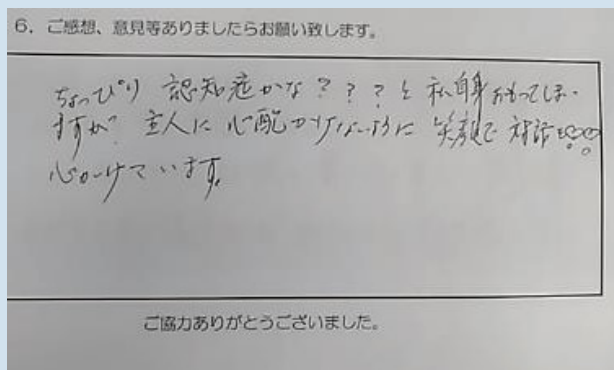 6. ご感想、意見等ありましたらお願い致します。
ちょっぴり 認知症かな？？？と 私自身おもってしまい
ますが 主人に 心配かけないように 笑顔で 対話を
心がけています。
ご協力ありがとうございました。